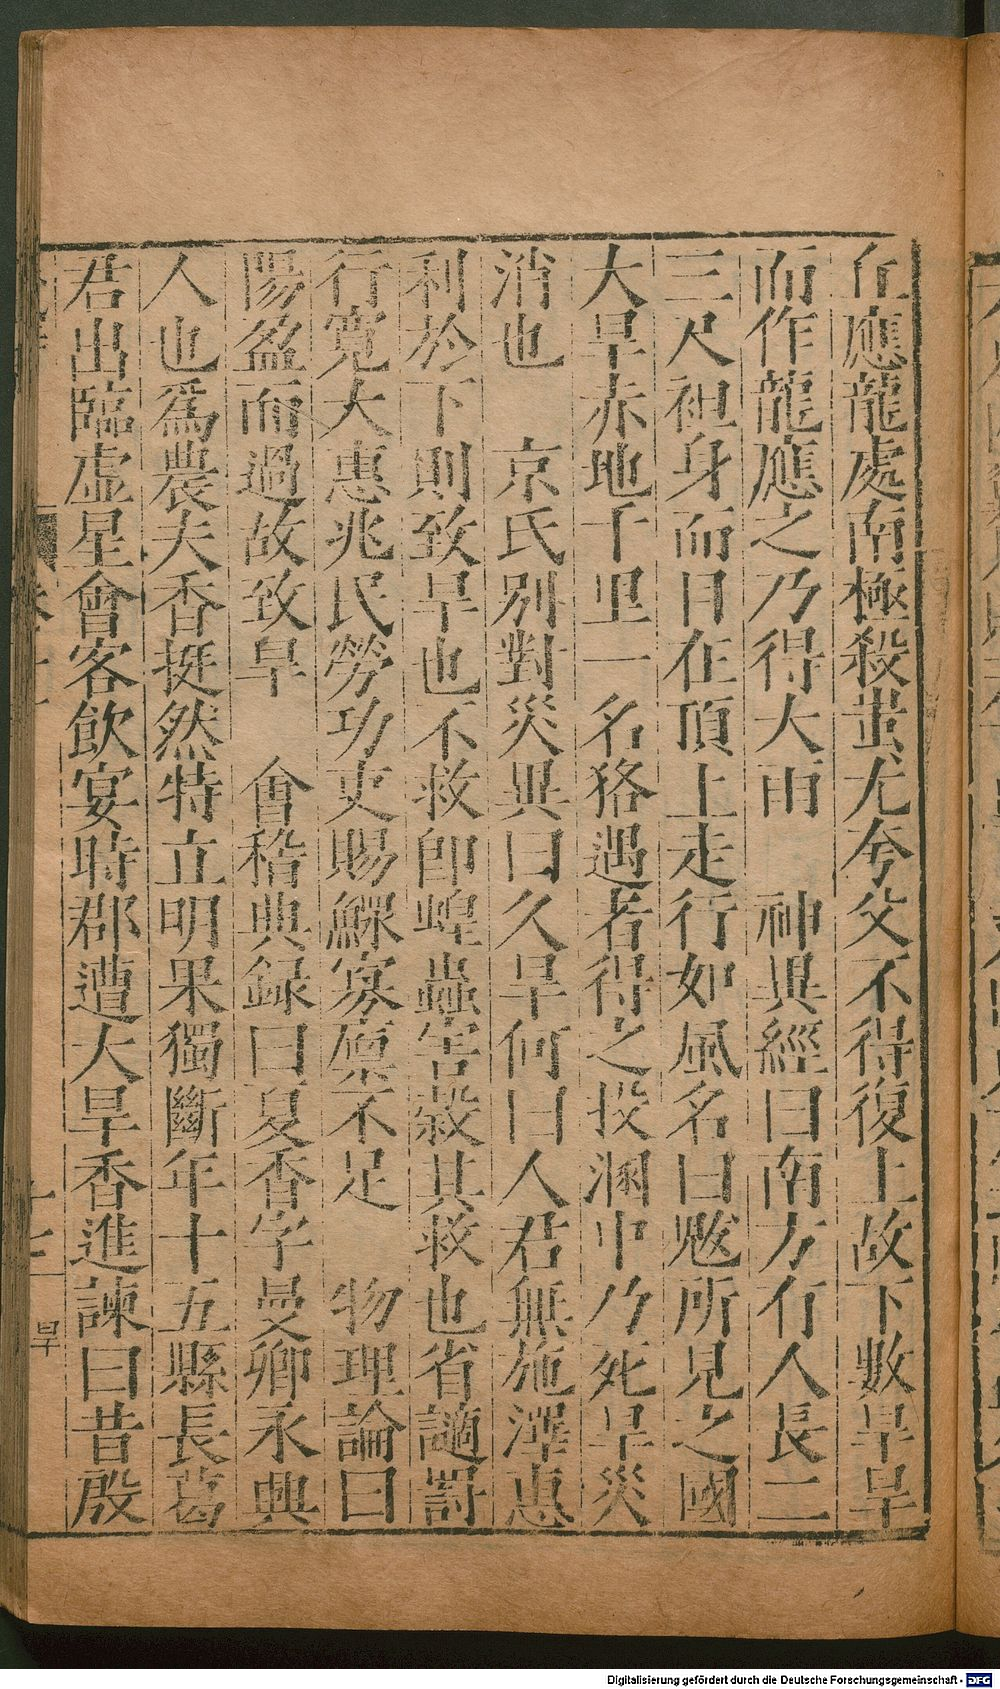 丘應龍處南極殺蚩尤夸父不得復上故下數旱旱
而作龍應之乃得大雨　神異經曰南方有人長二
三尺袒身而目在頂上走行如風名曰魃所見之國
大旱赤地千里一名狢遇者得之投溷中乃死旱災
消也　京氏別對災異曰久旱何曰人君無施澤惠
利於下則致旱也不救卽蝗蟲害榖其救也省讁罰
行寛大惠兆民勞功吏賜鰥寡廩不足　物理論曰
陽盈而過故致旱　會稽典録曰夏香字曼卿永興
人也爲農夫香挺然特立明果獨斷年十五縣長葛
君出臨虛星會客飲宴時郡遭大旱香進諫曰昔殷
十七
旱
Digitalisierung gefördert durch die Deutsche Forschungsgemeinschaft - DFG